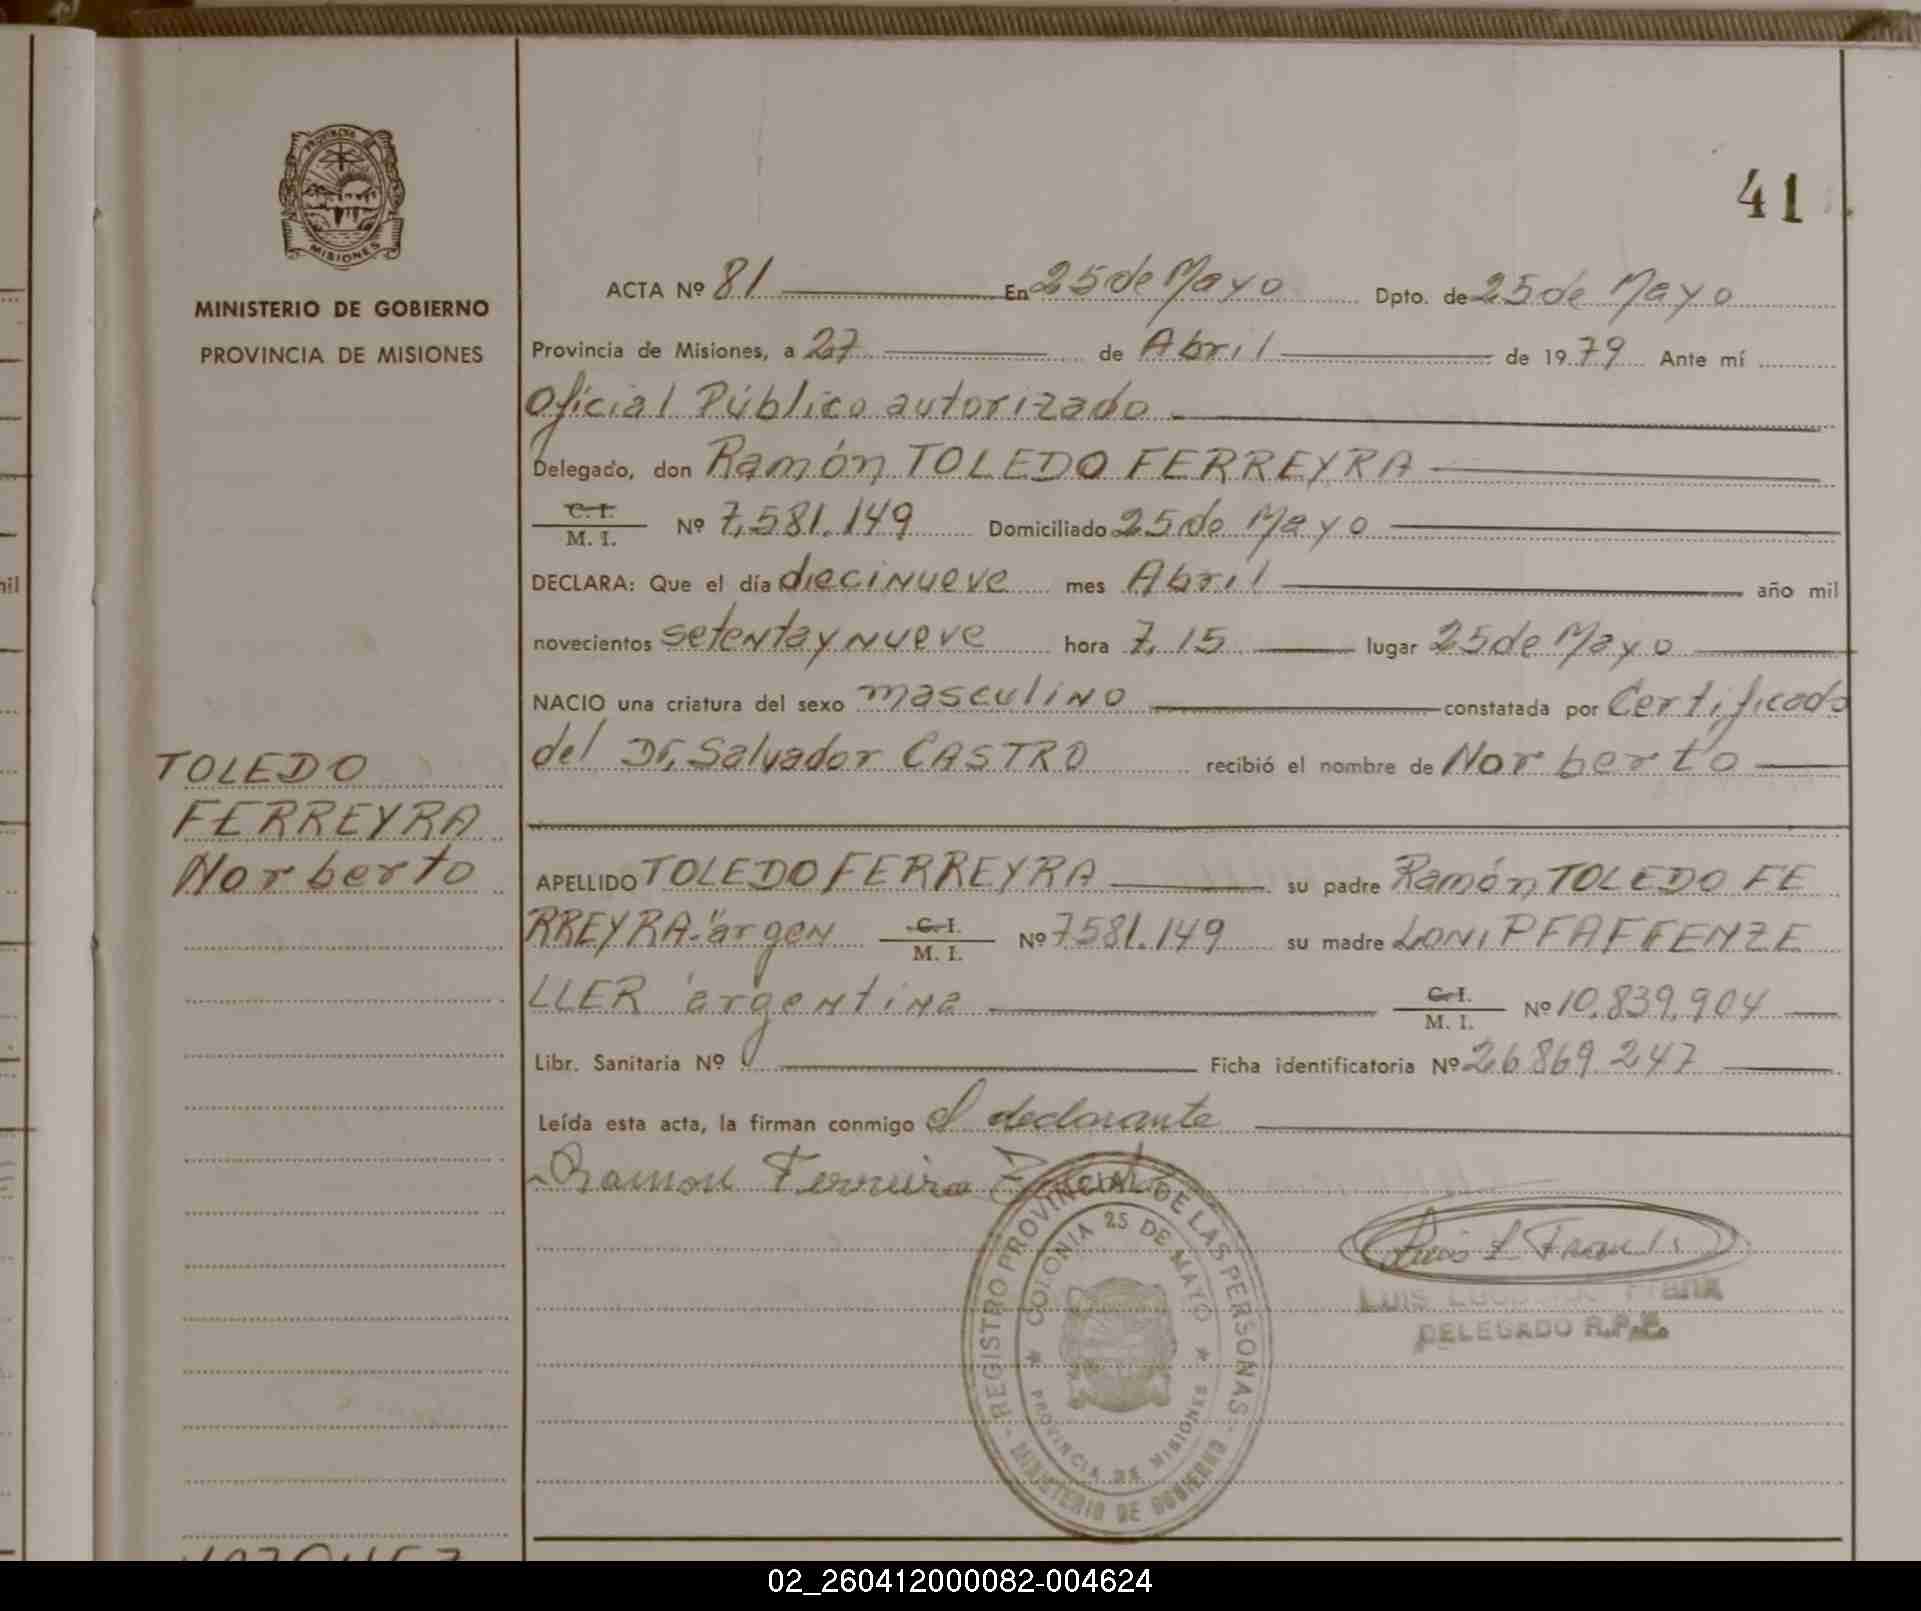 PROVINCIA
MISIONES
MINISTERIO DE GOBIERNO
PROVINCIA DE MISIONES
41
ACTA Nº 81 En 25 de Mayo Dpto. de 25 de Mayo
Provincia de Misiones, a 27 de Abril de 1979 Ante mí
Oficial Público autorizado
Delegado, don Ramón TOLEDO FERREYRA
C. I.
M. I. Nº 7.581.149 Domiciliado 25 de Mayo
DECLARA: Que el día diecinueve mes Abril año mil
novecientos setenta y nueve hora 7.15 lugar 25 de Mayo
NACIO una criatura del sexo masculino constatada por Certificado
del Dr. Salvador CASTRO recibió el nombre de Norberto
TOLEDO
FERREYRA
Norberto
APELLIDO TOLEDO FERREYRA su padre Ramón TOLEDO FE
RREYRA-"argen C. I.
M. I. Nº 7581.149 su madre LONI PFAFFENZE
LLER argentina C. I.
M. I. Nº 10.839.904
Libr. Sanitaria Nº Ficha identificatoria Nº 26869.247
Leída esta acta, la firman conmigo el declarante
Ramon Ferreira
REGISTRO PROVINCIAL DE LAS PERSONAS
COLONIA 25 DE MAYO
PROVINCIA DE MISIONES
MINISTERIO DE GOBIERNO
Luis L Frank
Luis Frank
DELEGADO R.P.P.
nil
02_260412000082-004624